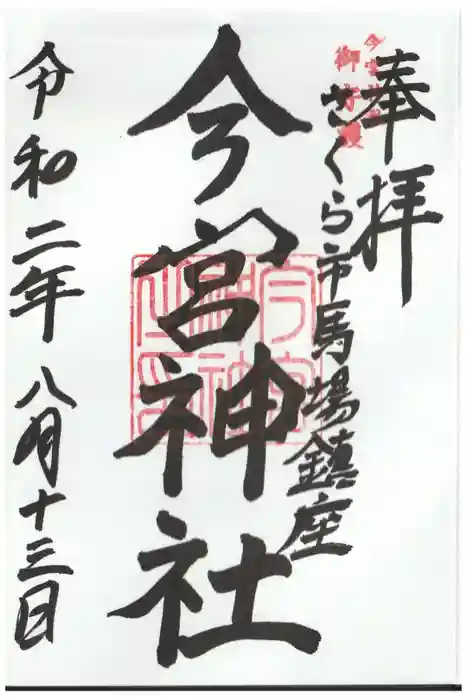 奉拝
今宮神社
御守護
さくら市馬場鎮座
今宮神社
令和二年八月十三日